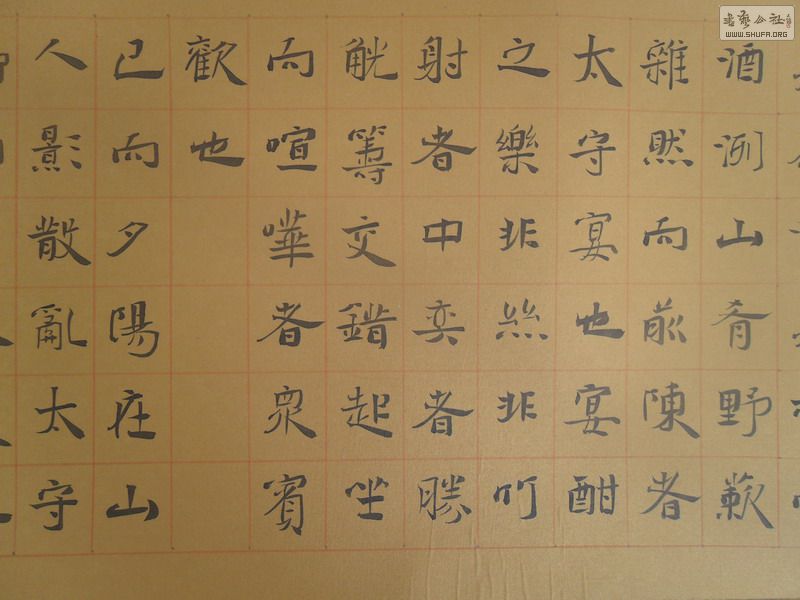 酒洌山肴野蔌
雜然而前陳者
太守宴也宴酣
之樂非絲非竹
射者中奕者勝
觥籌交錯起坐
而喧嘩者衆賓
歡也
已而夕陽在山
人影散亂太守
書藝公社
WWW.SHUFA.ORG